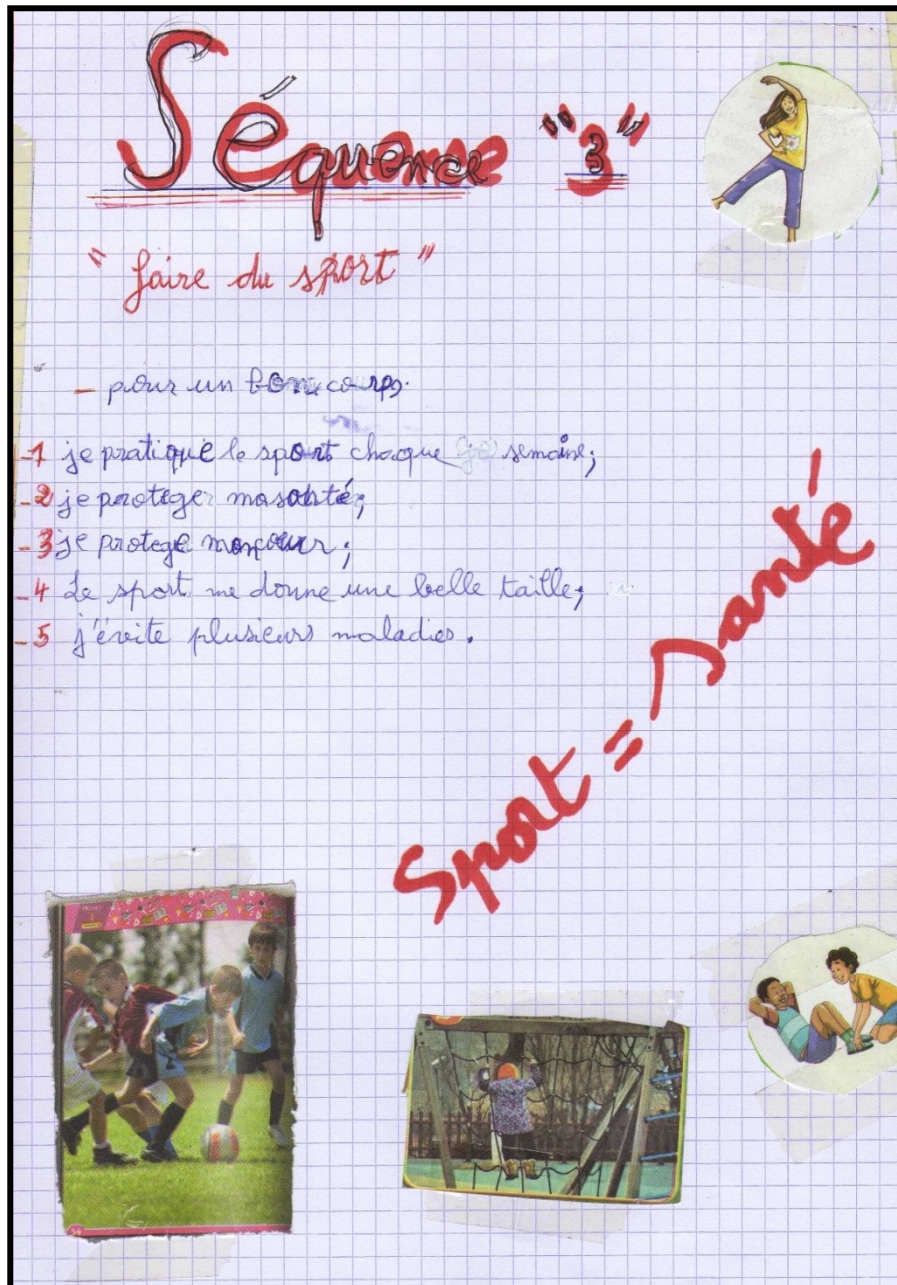 Séquence "3"
"faire du sport"
- pour un bon corps.
-1 je pratique le sport chaque semaine;
-2 je proteger ma santé;
-3 je protege mon cœur;
-4 Le sport me donne une belle taille;
-5 j'évite plusieurs maladies.
Sport = Santé
54